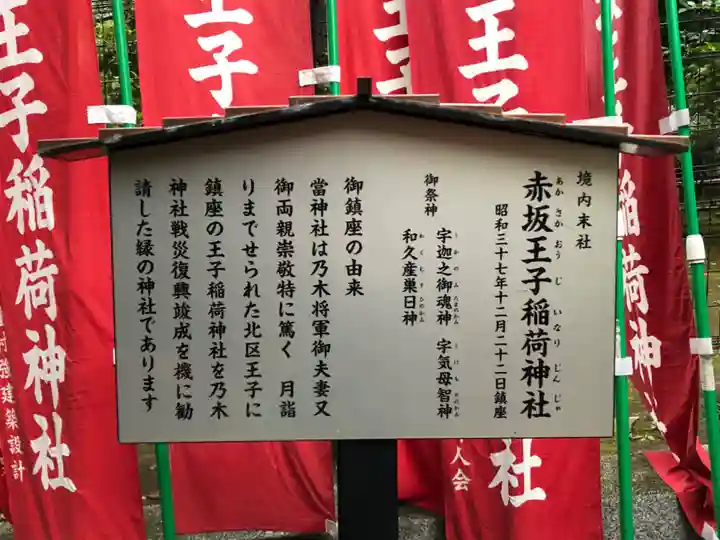 境内末社
赤坂王子稲荷神社
あかさかおうじいなりじんじゃ
昭和三十七年十二月二十二日鎮座
御祭神
宇迦之御魂神 宇気母智神
和久産巣日神
御鎮座の由来
當神社は乃木将軍御夫妻又
御両親崇敬特に篤く 月詣
りまでせられた北区王子に
鎮座の王子稲荷神社を乃木
神社戦災復興竣成を機に勧
請した縁の神社であります
王子稲荷神社
王子
王子
稲荷神社
建築設計
人会
神社